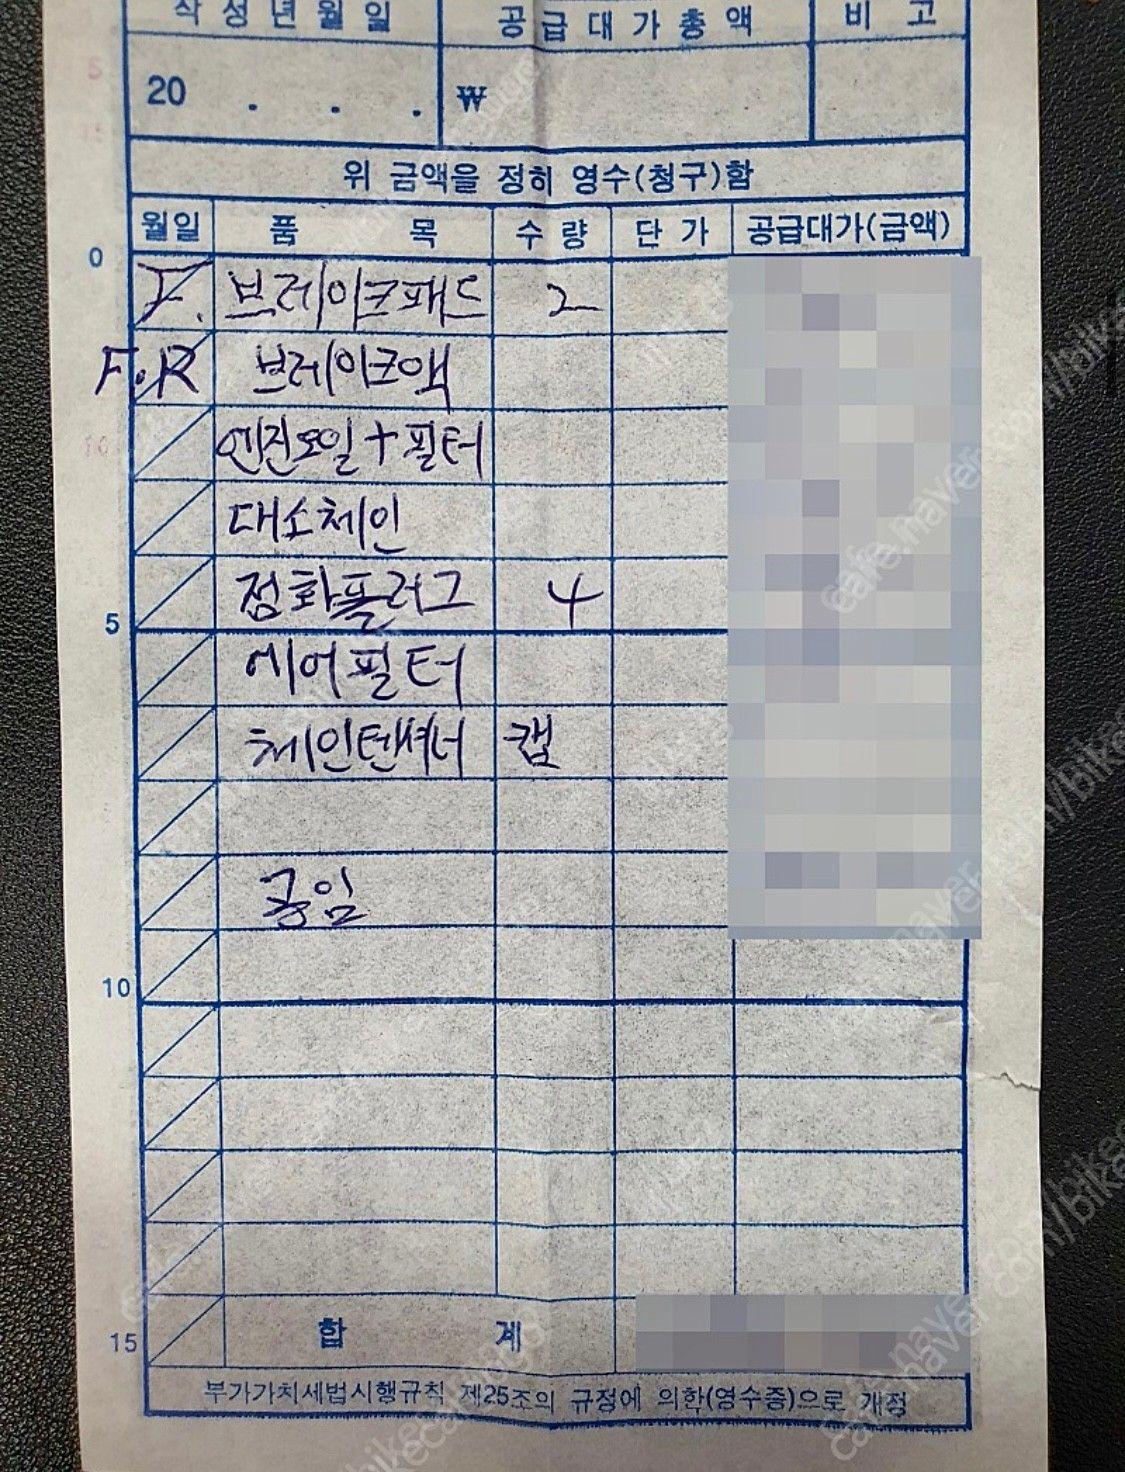 작성년월일 공급대가총액 비고
20 . . . ₩
위 금액을 정히 영수(청구)함
월일 품 목 수량 단가 공급대가(금액)
0
F. 브레이크패드 2
F.R 브레이크액
10
엔진오일+필터
대소체인
점화플러그 4
5
에어필터
체인텐셔너 캡
공임
10
15 합 계
부가가치세법시행규칙 제25조의 규정에 의한(영수증)으로 개정
cafe.naver.com/bike